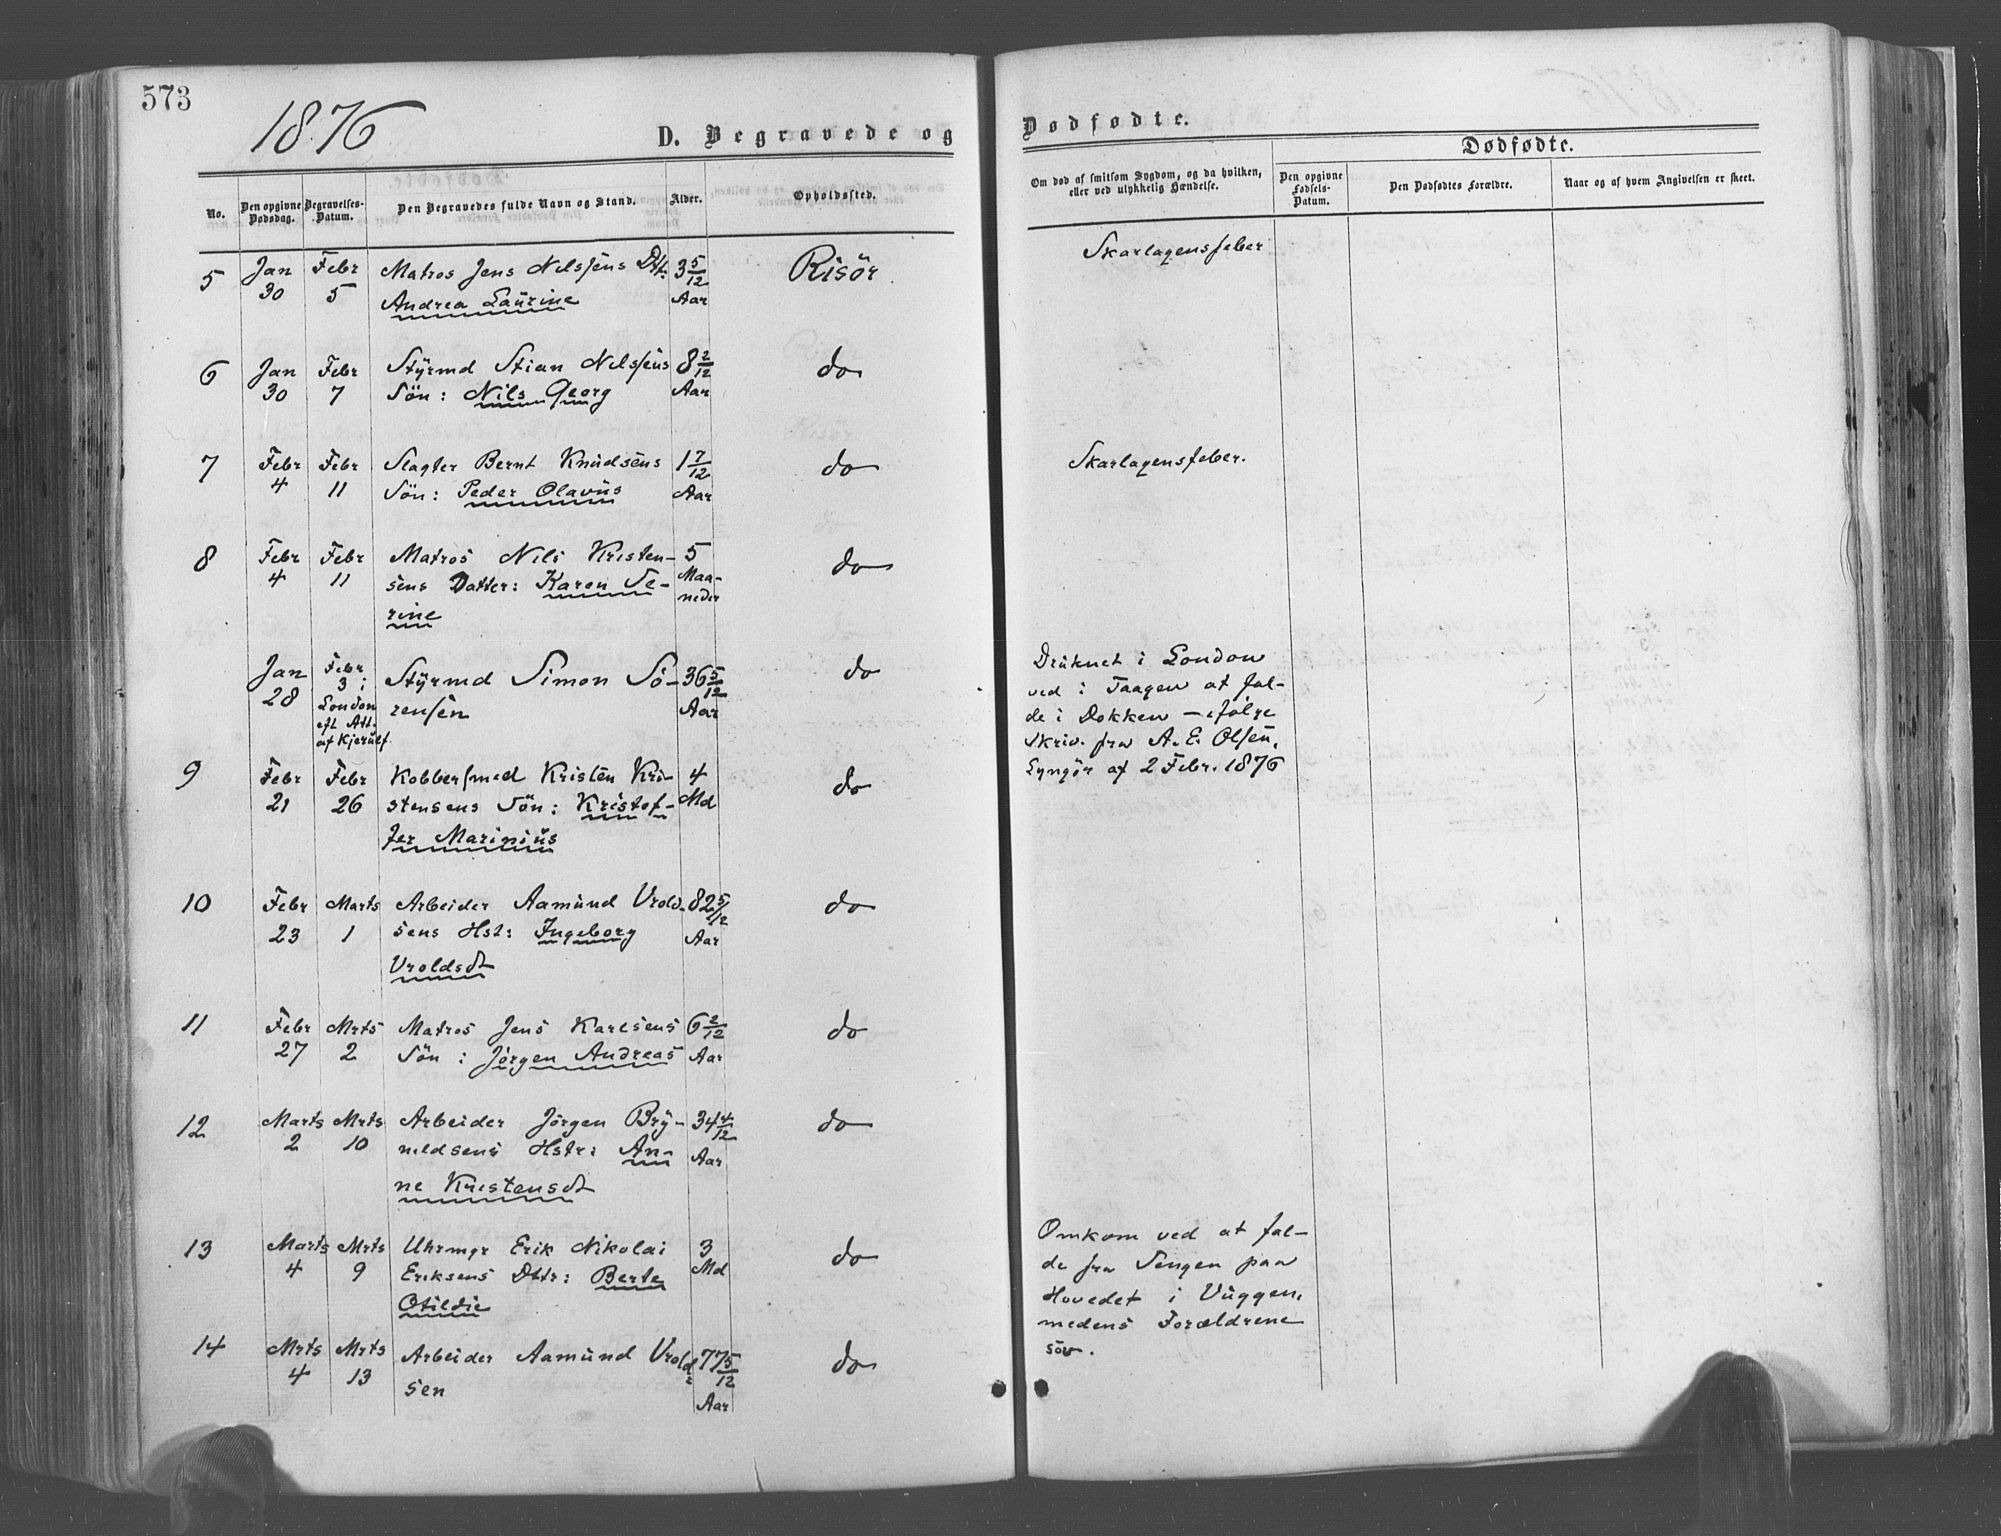 573
1876
D. Begravede og
Dødfødte.
Dødfødte.
No.
Den opgivne Dødsdag.
Begravelses-Datum.
Den Begravedes fulde Navn og Stand.
Alder.
Opholdssted.
Om død af smitsom Sygdom, og da hvilken,
eller ved ulykkelig Hændelse.
Den opgivne Fødsels-Datum.
Den Dødfødtes Forældre.
Naar og af hvem Angivelsen er skeet.
5 Jan 30 Febr 5 Matros Jens Nilssens Dtr: 3 5/12 Aar Risör Skarlagensfeber
Andrea Laurine
6 Jan 30 Febr 7 Styrmd Stian Nilssens 8 2/12 Aar do
Sön: Nils Georg
7 Febr 4 Febr 11 Slagter Bernt Knudsens 1 7/12 Aar do Skarlagensfeber.
Sön: Peder Olavus
8 Febr 4 Febr 11 Matros Nils Kristen- 5 Maa-neder do
sens Datter: Karen Se-
rine
Jan 28 Febr 3 i London eft Att. af Kjerulf Styrmd Simon Sö- 36 5/12 Aar do
rensen
Druknet i London
ved i Taagen at fal-
de i Dokken – ifölge
Skriv. fra A. E. Olsen,
Lyngör af 2 Febr. 1876
9 Febr 21 Febr 26 Kobbersmed Kristen Kri- 4 Md do
stensens Sön: Kristof-
fer Marinius
10 Febr 23 Marts 1 Arbeider Aamund Vrold- 82 5/12 Aar do
sens Hst: Ingeborg
Vroldsdt
11 Febr 27 Mrts 2 Matros Jens Karlsens 6 2/12 Aar do
Sön: Jörgen Andreas
12 Marts 2 Mrts 10 Arbeider Jörgen Bry- 34 4/12 Aar do
nildsens Hstr: An-
ne Kristensdt
13 Marts 4 Mrts 9 Uhrmgr Erik Nikolai 3 Md do
Eriksens Dttr: Berte
Otildie
Omkom ved at fal-
de fra Sengen paa
Hovedet i Vuggen,
medens Forældrene
sov.
14 Mrts 4 Mrts 13 Arbeider Aamund Vrold- 77 5/12 Aar do
sen